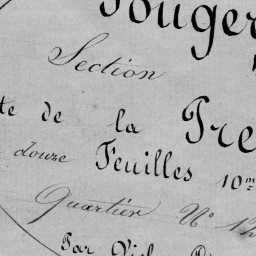 Fouger
Section
te de la Tre
douze Feuilles 10me
Quartier N° 12
Par Viel